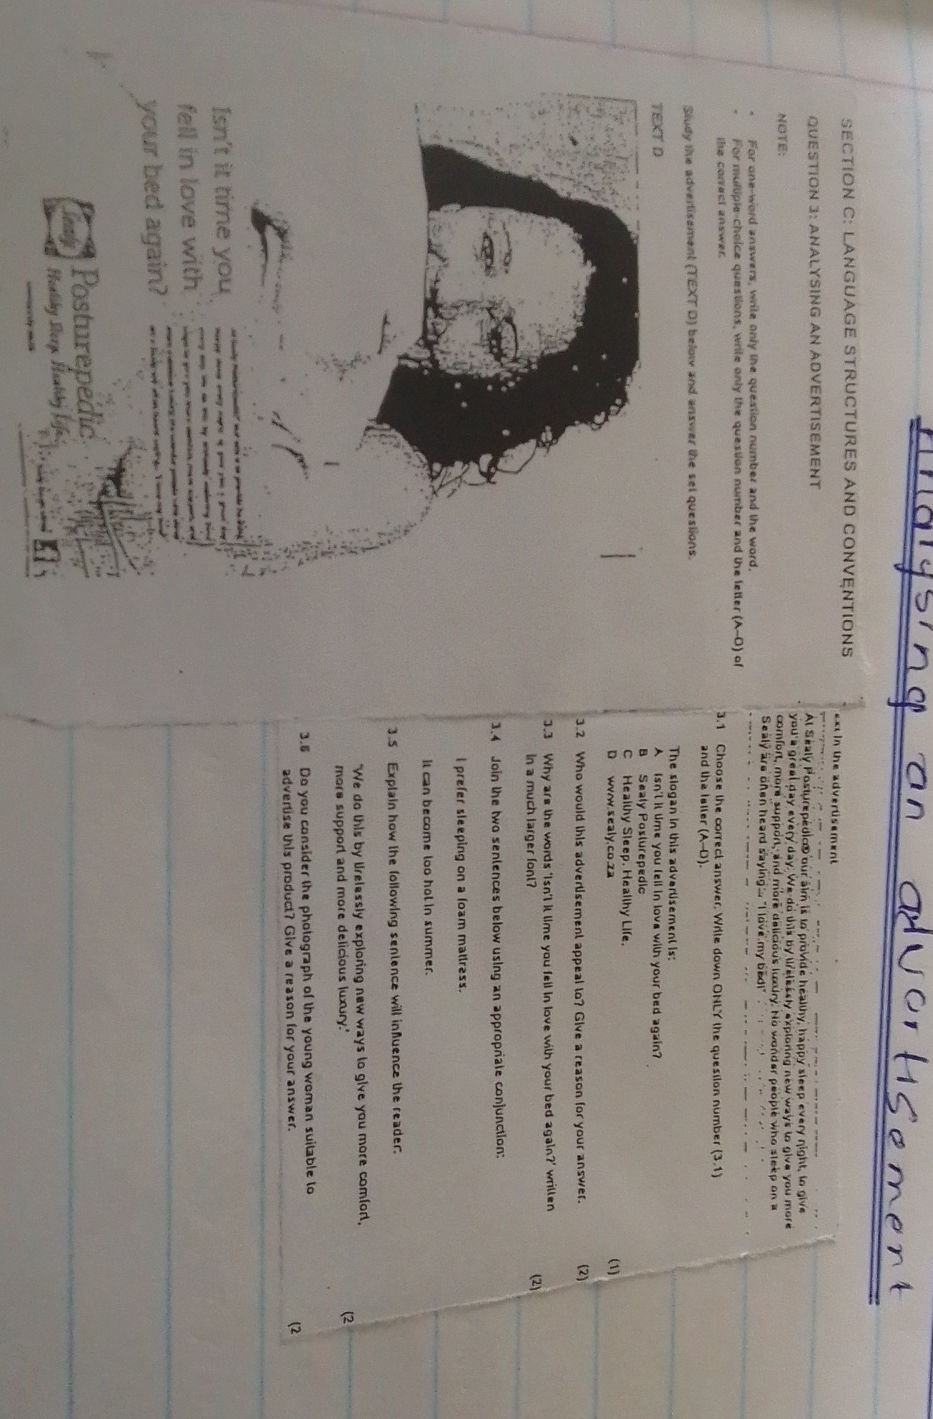 Analysing an advertisement
SECTION C: LANGUAGE STRUCTURES AND CONVENTIONS
QUESTION 3: ANALYSING AN ADVERTISEMENT
NOTE:
• For one-word answers, write only the question number and the word.
• For multiple-choice questions, write only the question number and the letter (A–D) of
the correct answer.
Study the advertisement (TEXT D) below and answer the set questions.
TEXT D
Isn't it time you
fell in love with
your bed again?
Sealy Posturepedic
Healthy Sleep. Healthy Life.
in the advertisement
At Sealy Posturepedic® our aim is to provide healthy, happy sleep every night, to give
you a great day every day. We do this by tirelessly exploring new ways to give you more
comfort, more support, and more delicious luxury. No wonder people who sleep on a
Sealy are often heard saying... "I love my bed!"
3.1 Choose the correct answer. Write down ONLY the question number (3.1)
and the letter (A–D).
The slogan in this advertisement is:
A Isn't it time you fell in love with your bed again?
B Sealy Posturepedic
C Healthy Sleep. Healthy Life.
D www.sealy.co.za (1)
3.2 Who would this advertisement appeal to? Give a reason for your answer. (2)
3.3 Why are the words 'Isn't it time you fell in love with your bed again?' written
in a much larger font? (2)
3.4 Join the two sentences below using an appropriate conjunction:
I prefer sleeping on a foam mattress.
It can become too hot in summer.
3.5 Explain how the following sentence will influence the reader.
'We do this by tirelessly exploring new ways to give you more comfort,
more support and more delicious luxury.' (2
3.6 Do you consider the photograph of the young woman suitable to
advertise this product? Give a reason for your answer. (2